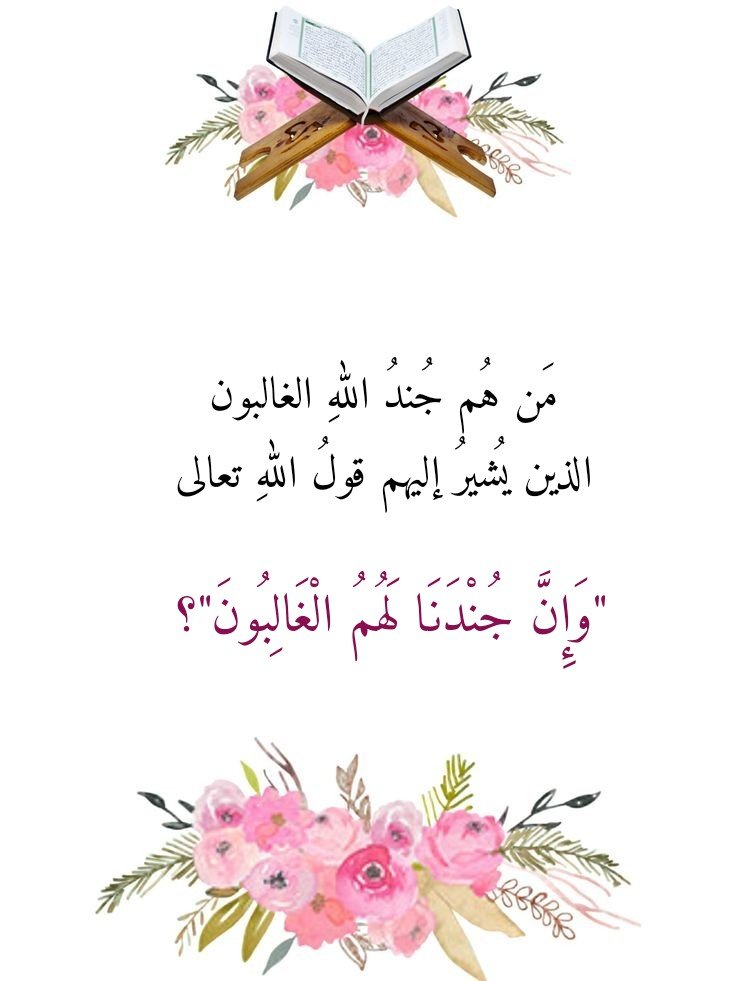 مَن هُم جُندُ اللهِ الغالبون
الذين يُشيرُ إليهم قولُ اللهِ تعالى
"وَإِنَّ جُنْدَنَا لَهُمُ الْغَالِبُونَ"؟